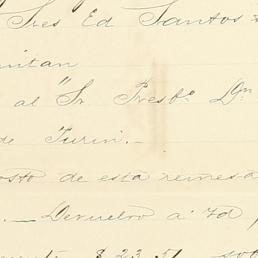 Sres Ed Santos
mitan
al "Sr Presbº Dn
de Turin.—
osto de esta remesa
.— Devuelvo a Vd
$ 23.51